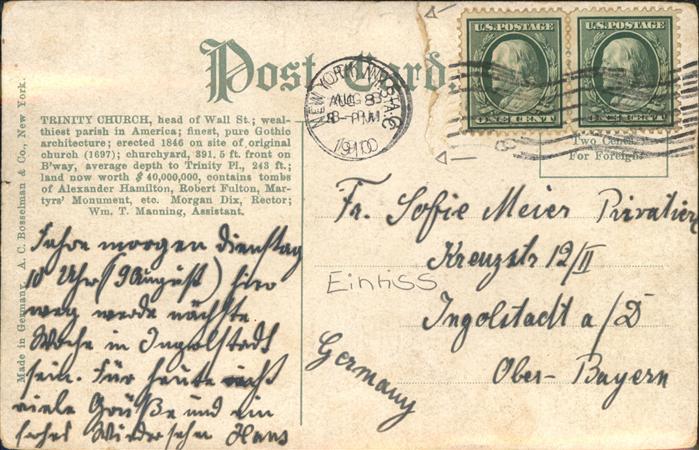 U.S. POSTAGE U.S. POSTAGE
ONE CENT ONE CENT
Post Card.
NEW YORK, N.Y. STA. C
AUG 8
8-PM
1910
Two Cents
For Foreign
TRINITY CHURCH, head of Wall St.; weal-
thiest parish in America; finest, pure Gothic
architecture; erected 1846 on site of original
church (1697); churchyard, 391.5 ft. front on
B'way, average depth to Trinity Pl., 248 ft.;
land now worth $ 40,000,000, contains tombs
of Alexander Hamilton, Robert Fulton, Mar-
tyrs' Monument, etc. Morgan Dix, Rector;
Wm. T. Manning, Assistant.
Made in Germany. A. C. Bosselman & Co., New York.
Fahre morgen Dienstag
10 Uhr (9 August) hier
weg werde nächste
Woche in Ingolstadt
sein. Für heute recht
viele Grüße und ein
frohes Wiedersehen Hans
Fr. Sofie Meier Privatier
Kreuzstr 12/II
Einriss
Ingolstadt a/D
Ober-Bayern
Germany